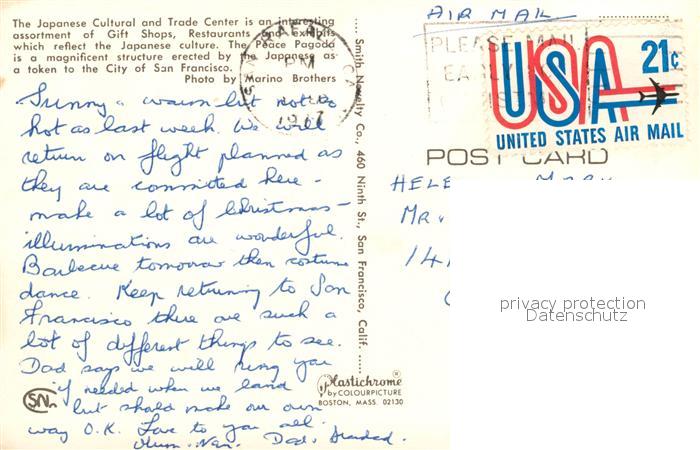 The Japanese Cultural and Trade Center is an interesting
assortment of Gift Shops, Restaurants and Exhibits
which reflect the Japanese culture. The Peace Pagoda
is a magnificent structure erected by the Japanese as
a token to the City of San Francisco.
Photo by Marino Brothers
Sunny & warm but not so
hot as last week. We will
return on flight planned as
they are committed here -
make a lot of Christmas -
illuminations are wonderful.
Barbecue tomorrow then costume
dance. Keep returning to San
Francisco there are such a
lot of different things to see.
Dad says we will ring you
if needed when we land
but should make our own
way O.K. Love to you all.
Mum - Nan. Dad - Grandad.
SN
Smith Novelty Co., 460 Ninth St., San Francisco, Calif.
Plastichrome
by COLOURPICTURE
BOSTON, MASS. 02130
AIR MAIL
PLEASE MAIL
EARLY
CA
1977
USA 21c
UNITED STATES AIR MAIL
POST CARD
HELE
MR
14
privacy protection
Datenschutz